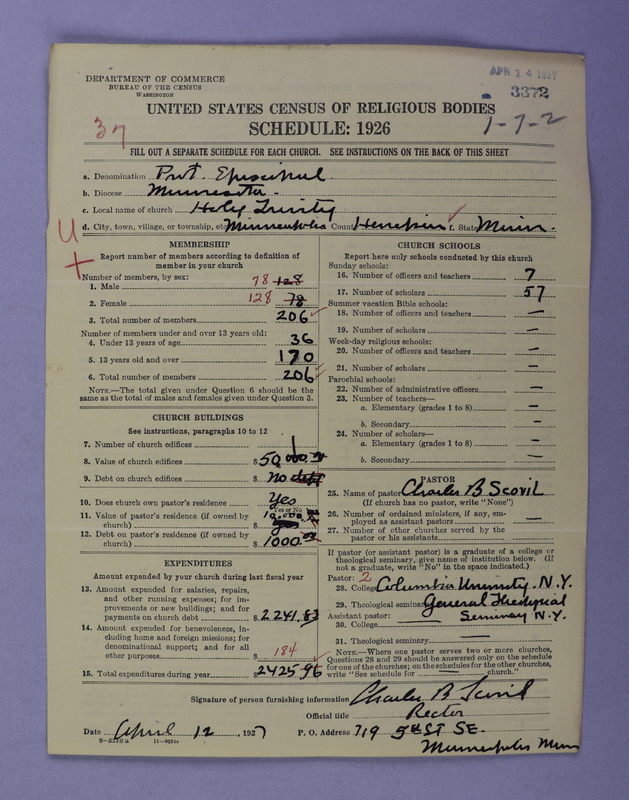 DEPARTMENT OF COMMERCE
BUREAU OF THE CENSUS
WASHINGTON
APR 14 1927
3372
UNITED STATES CENSUS OF RELIGIOUS BODIES
SCHEDULE: 1926
37
1-7-2
FILL OUT A SEPARATE SCHEDULE FOR EACH CHURCH. SEE INSTRUCTIONS ON THE BACK OF THIS SHEET
a. Denomination Prot. Episcopal
b. Diocese Minnesota
c. Local name of church Holy Trinity
d. City, town, village, or township, etc Minneapolis County Hennepin f. State Minn.
U
+
MEMBERSHIP
Report number of members according to definition of
member in your church
Number of members, by sex:
1. Male 78 128
2. Female 128 78
3. Total number of members 206
Number of members under and over 13 years old:
4. Under 13 years of age 36
5. 13 years old and over 170
6. Total number of members 206
NOTE.—The total given under Question 6 should be
same as the total of males and females given under Question 3.
CHURCH BUILDINGS
See instructions, paragraphs 10 to 12
7. Number of church edifices 1
8. Value of church edifices $50,000
9. Debt on church edifices $ No debt
10. Does church own pastor's residence Yes
Yes or No
11. Value of pastor's residence (if owned by
church) $
12. Debt on pastor's residence (if owned by
church) $1000
EXPENDITURES
Amount expended by your church during last fiscal year
13. Amount expended for salaries, repairs,
and other running expenses; for im-
provements or new buildings; and for
payments on church debt $2241.83
14. Amount expended for benevolences, in-
cluding home and foreign missions; for
denominational support; and for all
other purposes $ 184
15. Total expenditures during year $2425.96
CHURCH SCHOOLS
Report here only schools conducted by this church
Sunday schools:
16. Number of officers and teachers 7
17. Number of scholars 57
Summer vacation Bible schools:
18. Number of officers and teachers —
19. Number of scholars —
Week-day religious schools:
20. Number of officers and teachers —
21. Number of scholars —
Parochial schools:
22. Number of administrative officers —
23. Number of teachers—
a. Elementary (grades 1 to 8) —
b. Secondary —
24. Number of scholars—
a. Elementary (grades 1 to 8) —
b. Secondary —
PASTOR
25. Name of pastor Charles B Scovil
(If church has no pastor, write "None")
26. Number of ordained ministers, if any, em-
ployed as assistant pastors —
27. Number of other churches served by the
pastor or his assistants
If pastor (or assistant pastor) is a graduate of a college or
theological seminary, give name of institution below. (If
not a graduate, write "No" in the space indicated.)
Pastor: 2
28. College Columbia University. N.Y.
29. Theological seminary General Theological
Assistant pastor: Seminary N.Y.
30. College
31. Theological seminary —
NOTE.—Where one pastor serves two or more churches,
Questions 28 and 29 should be answered only on the schedule
for one of the churches; on the schedules for the other churches,
write "See schedule for — church."
Signature of person furnishing information Charles B Scovil
Official title Rector
Date April 12, 1927 P. O. Address 719 5th ST SE.
Minneapolis Minn